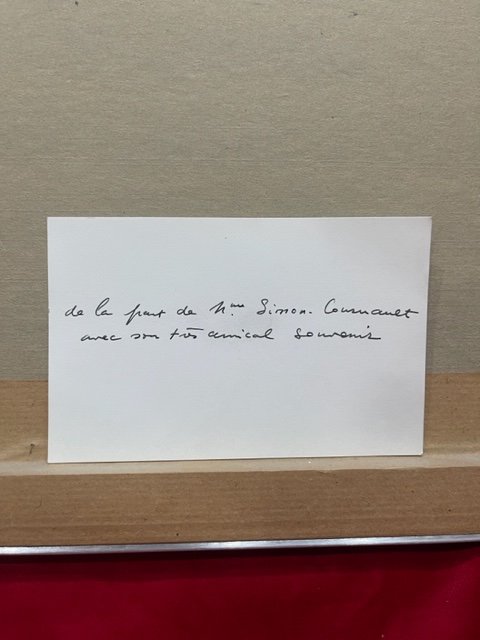 de la part de Mme Simon-
avec son très amical souvenir